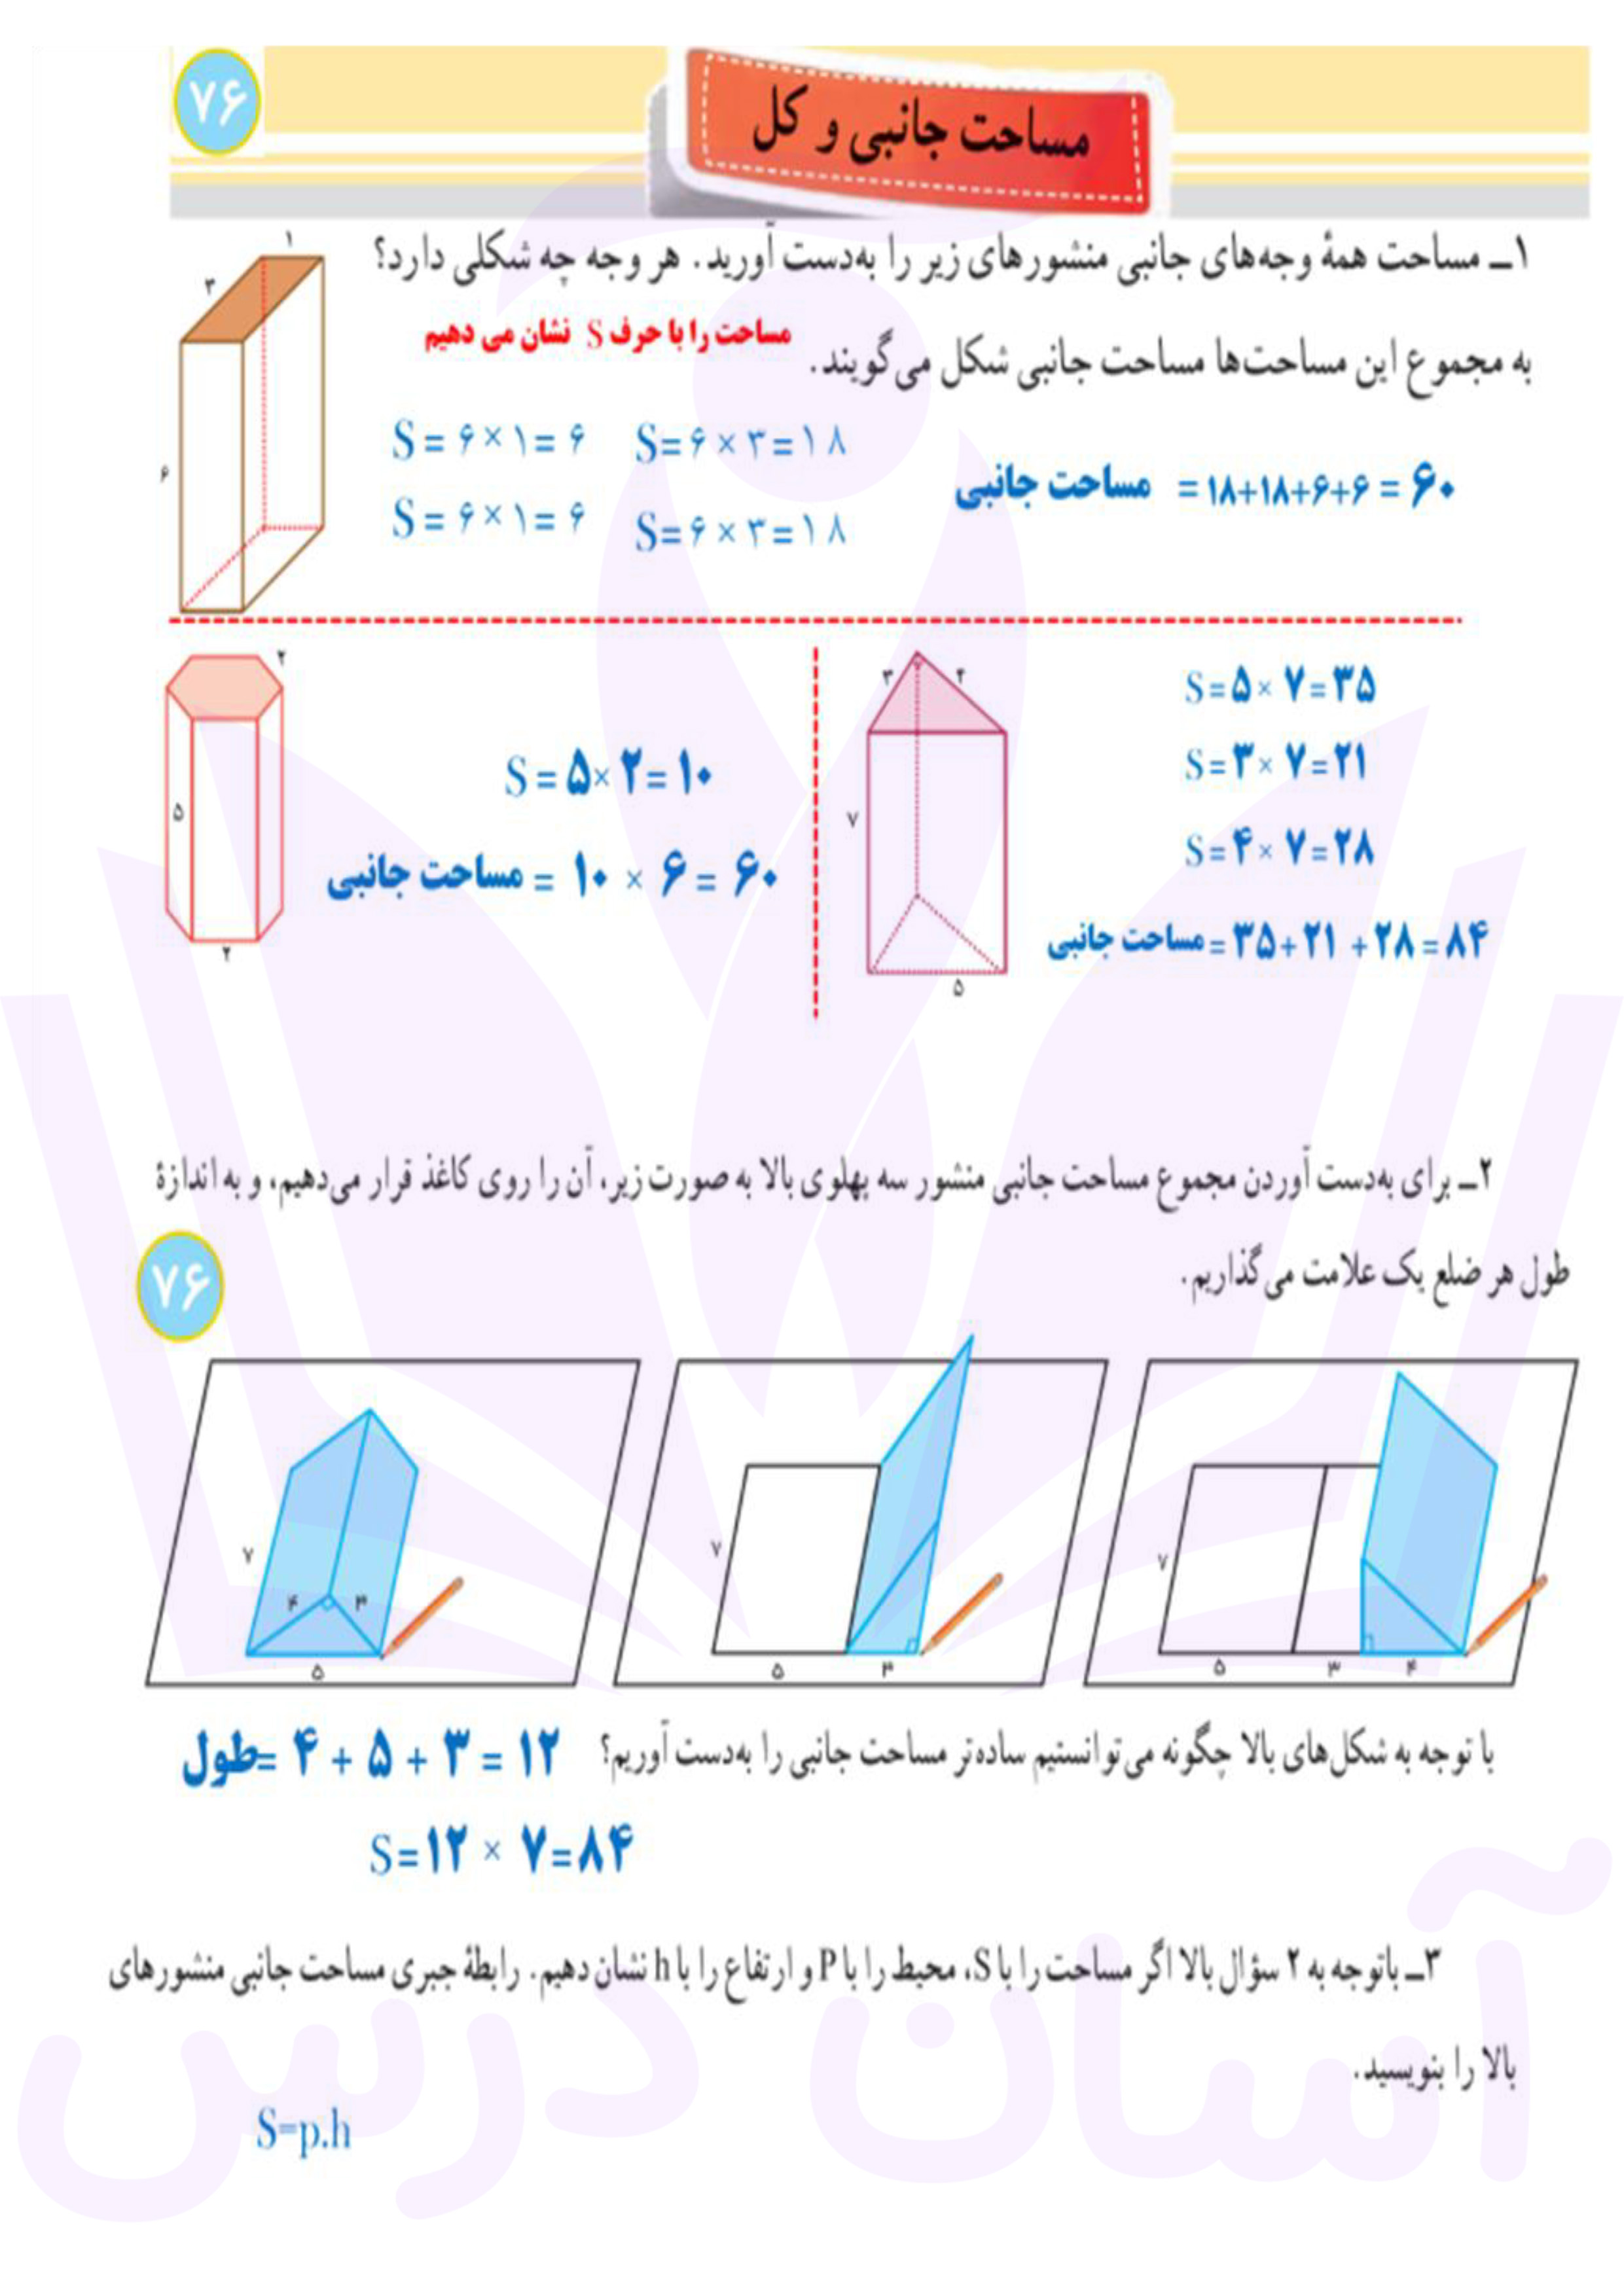 ۷۶
مساحت جانبی و کل
۱ــ مساحت همهٔ وجه‌های جانبی منشورهای زیر را به‌دست آورید. هر وجه چه شکلی دارد؟
مساحت را با حرف S نشان می دهیم
به مجموع این مساحت‌ها مساحت جانبی شکل می‌گویند.
۱
۳
۶
S = ۶ × ۱ = ۶
S = ۶ × ۳ = ۱۸
S = ۶ × ۱ = ۶
S = ۶ × ۳ = ۱۸
مساحت جانبی = ۱۸+۱۸+۶+۶ = ۶۰
۳
۴
۷
۵
S = ۵ × ۷ = ۳۵
S = ۳ × ۷ = ۲۱
S = ۴ × ۷ = ۲۸
مساحت جانبی = ۳۵+۲۱ +۲۸ = ۸۴
۲
۵
۲
S = ۵ × ۲ = ۱۰
مساحت جانبی = ۱۰ × ۶ = ۶۰
۲ــ برای به‌دست آوردن مجموع مساحت جانبی منشور سه پهلوی بالا به صورت زیر، آن را روی کاغذ قرار می‌دهیم، و به اندازهٔ
طول هر ضلع یک علامت می‌گذاریم.
۷۶
۷
۴
۳
۵
۷
۵
۳
۷
۵
۳
۴
با توجه به شکل‌های بالا چگونه می‌توانستیم ساده‌تر مساحت جانبی را به‌دست آوریم؟
طول= ۴ + ۵ + ۳ = ۱۲
S = ۱۲ × ۷ = ۸۴
۳ــ باتوجه به ۲ سؤال بالا اگر مساحت را با S، محیط را با P و ارتفاع را با h نشان دهیم. رابطهٔ جبری مساحت جانبی منشورهای
بالا را بنویسید.
S=p.h
آسان درس